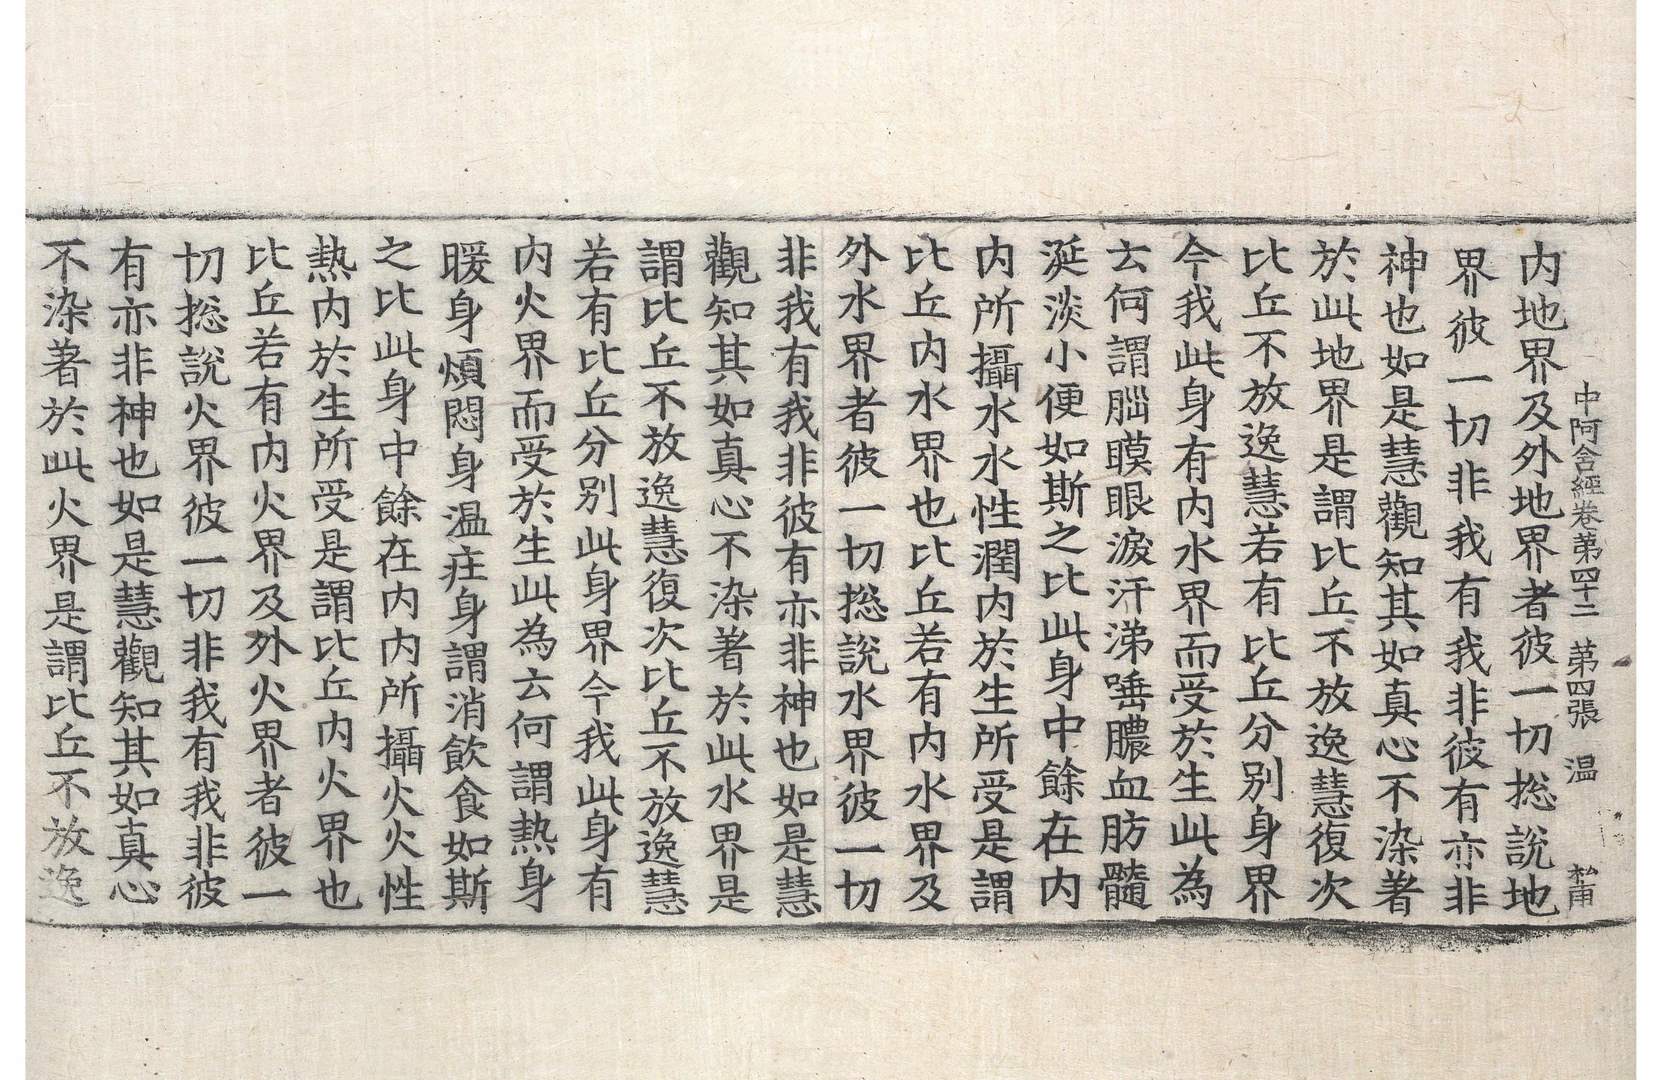 中阿含經卷第四十二 第四張 温 松甫
内地界及外地界者彼一切捴說地
界彼一切非我有我非彼有亦非
神也如是慧觀知其如真心不染著
於此地界是謂比丘不放逸慧復次
比丘不放逸慧若有比丘分別身界
今我此身有内水界而受於生此為
云何謂腦膜眼淚汗涕唾膿血肪髓
涎淡小便如斯之比此身中餘在内
内所攝水水性潤内於生所受是謂
比丘内水界也比丘若有内水界及
外水界者彼一切捴說水界彼一切
非我有我非彼有亦非神也如是慧
觀知其如真心不染著於此水界是
謂比丘不放逸慧復次比丘不放逸慧
若有比丘分別此身界今我此身有
内火界而受於生此為云何謂熱身
暖身煩悶身温庄身謂消飲食如斯
之比此身中餘在内内所攝火火性
熱内於生所受是謂比丘内火界也
比丘若有内火界及外火界者彼一
切捴說火界彼一切非我有我非彼
有亦非神也如是慧觀知其如真心
不染著於此火界是謂比丘不放逸